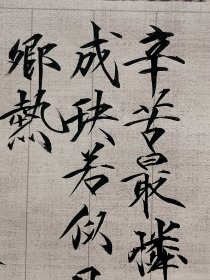 辛苦最憐
成玦若似
鄉熱